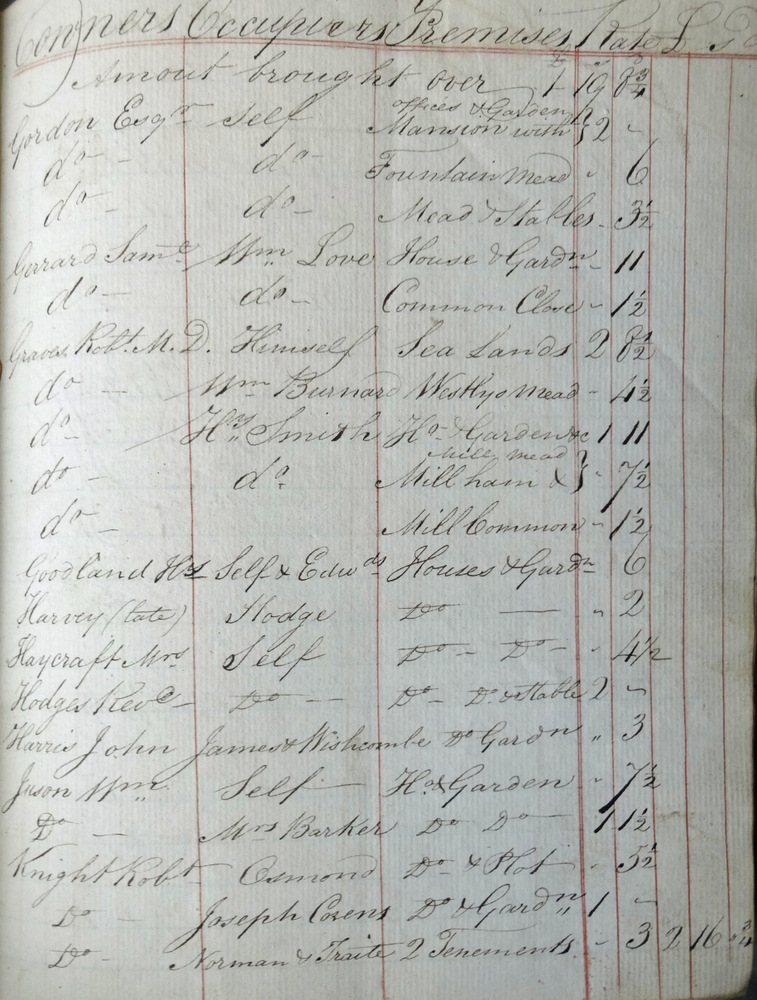 Owners Occupiers Premises Rate £ s d
Amout brought over 1 19 8¾
Gordon Esqr Self Mansion with offices & Garden } 2 "
do - do - Fountain mead " 6
do - do - Mead & Stables - 3½
Gerrard Saml Wm Love House & Gardn - 11
do - do - Common Close - 1½
Graves Robt. M.D. Himself Sea Lands 2 8½
do - Wm Burnard Westhys mead - 4½
do - Hy Smith Ho & Garden &c 1 11
do - do Mill ham & Mill mead } - 7½
do - Mill Common - 1½
Goodland Hs Self & Edwds Houses & Gardn 6
Harvey (late) Hodge Do — " 2
Haycraft Mrs Self Do - Do - " 4½
Hodges Revd Do — Do - Do & Stable 2 "
Harris John James & Wishcombe Do Gardn " 3
Juson Wm Self Ho & Garden - 7½
Do - Mrs Barker Do Do 1 1½
Knight Robt Osmond Do & Plot - 5½
Do - Joseph Cozens Do & Gardn 1 "
Do - Norman & Traite 2 Tenements - 3 2 16 " ¾